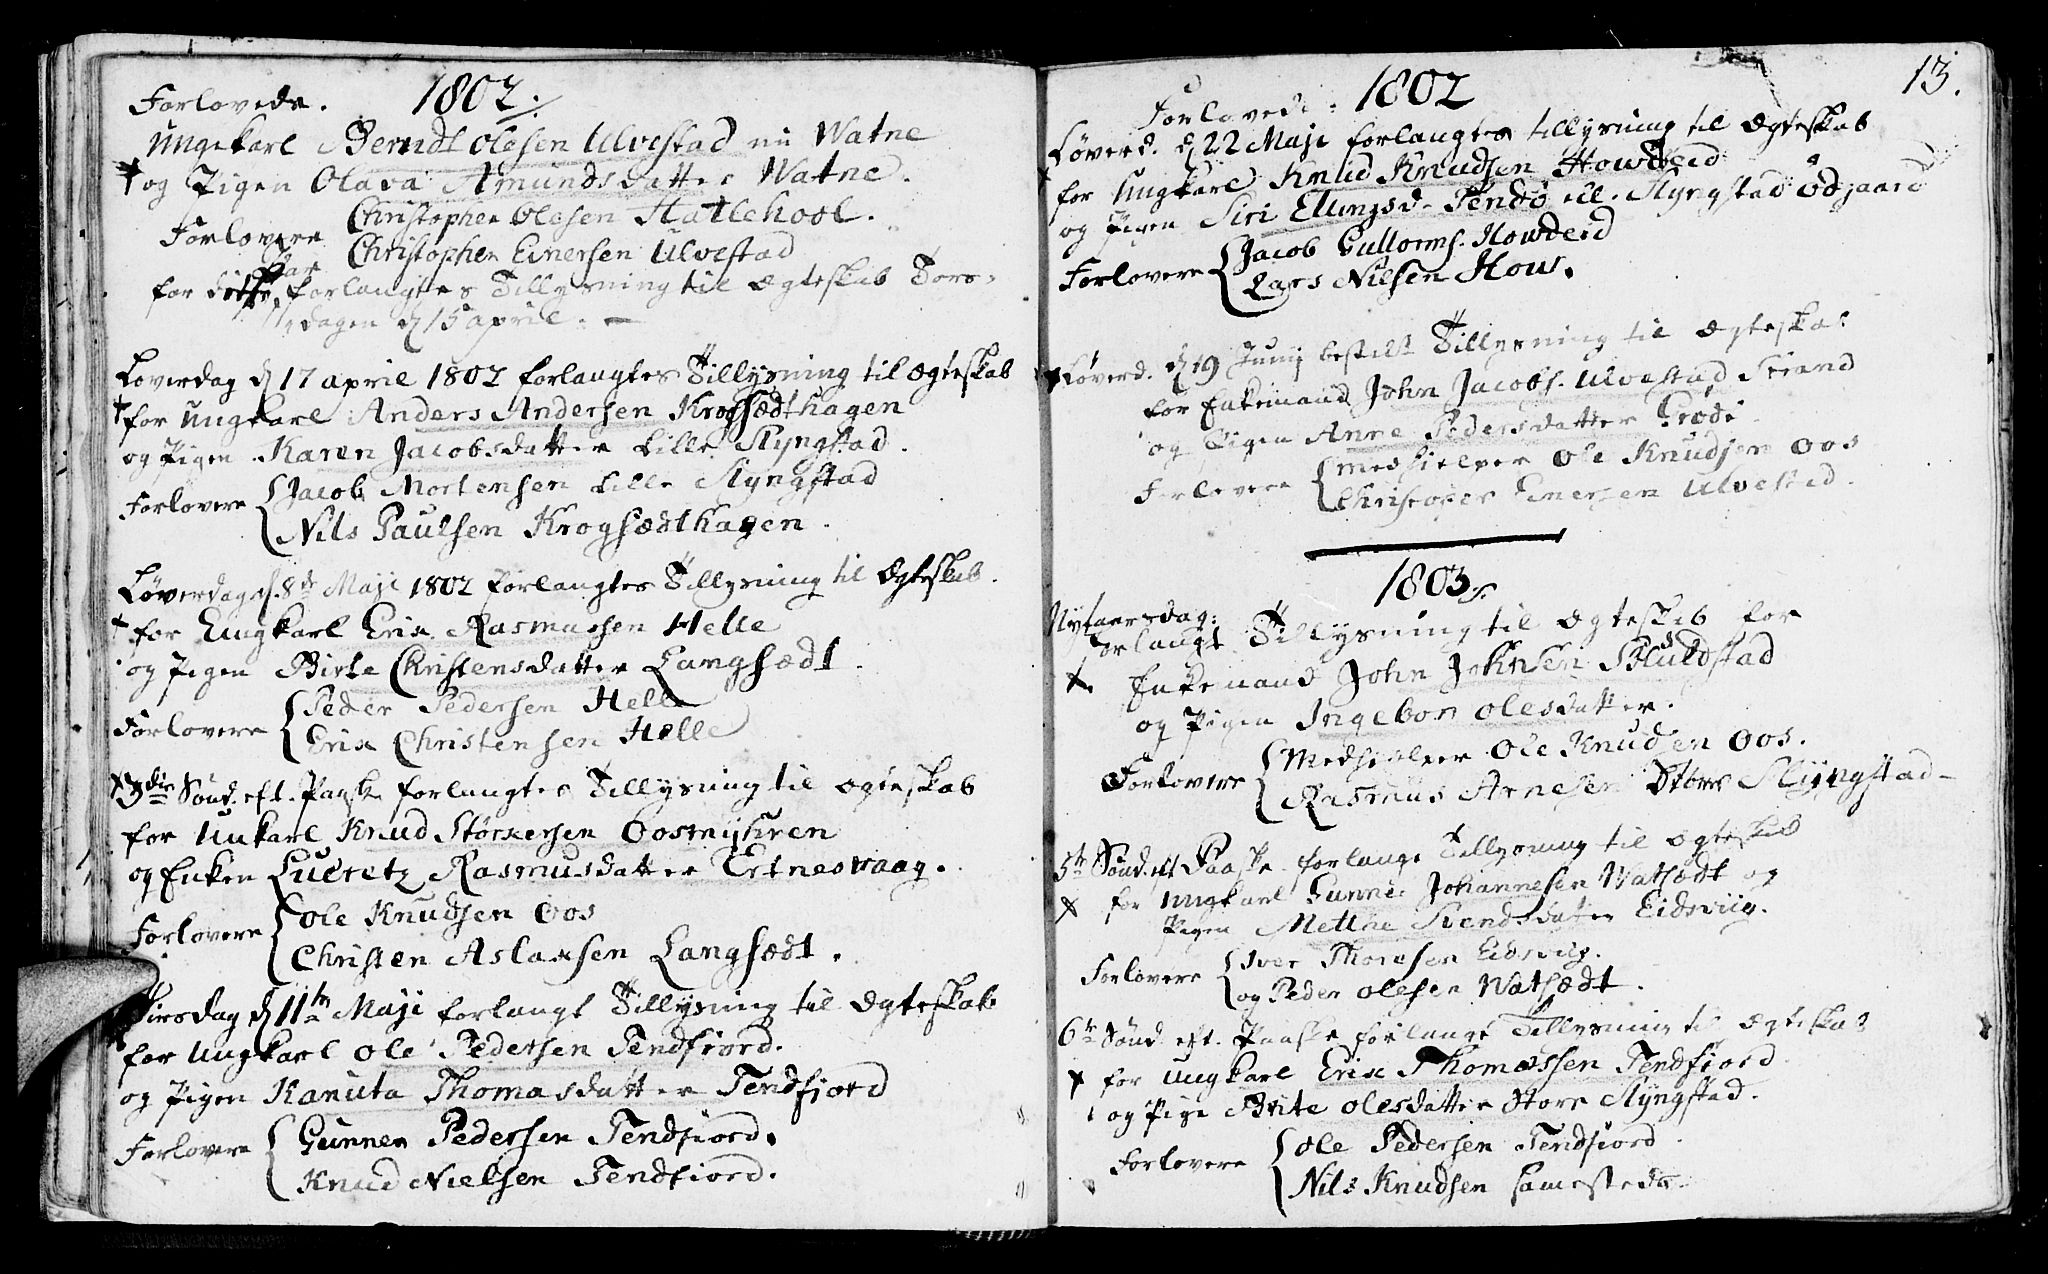 Forlovede. 1802.
Ungekarl Berndt Olesen Ulvestad nu Watne
og Pigen Olava Amundsdatter Watne.
Forlovere Christopher Olesen Hatlehool.
Christopher Einersen Ulvestad
Par
for dette forlangtes Tillysning til Ægteskab Tors-
dagen d 15 april.
Løverdag d 17 april 1802 forlangtes Tillysning til Ægteskab
for Ungkarl Anders Andersen Krogsædthagen
og Pigen Karen Jacobsdatter Lille Slyngstad.
Forlovere Jacob Mortensen Lille Slyngstad
Nils Paulsen Krogsædthagen.
Løverdag d. 8de Maji 1802 forlangtes Tillysning til Ægteskab.
for Ungkarl Erix Rasmussen Helle
og Pigen Birte Christensdatter Langsædt.
Forlovere Peder Pedersen Helle
Erix Christensen Helle
3die Sønd. eft. Paaske forlangtes Tillysning til Ægteskab
for Unkarl Knud Størkersen Oosmyhren
og Enken Lucretz Rasmusdatter Ertnesvaag.
Forlovere Ole Knudsen Oos
Christen Aslaksen Langsædt.
Tirsdag d 11te Maji forlangt Tillysning til Ægteskab
for Ungkarl Ole Pedersen Tendfiord.
og Pigen Kanuta Thomasdatter Tendfjord
Forlovere Gunner Pedersen Tendfiord.
Knud Nielsen Tendfiord.
13.
Forlovede. 1802
Løverd. d 22 Maji forlangtes tillysning til Ægteskab
for Ungkarl Knud Knudsen Howdeid
og Pigen Siri Ellingsd. Tendø ell. Slyngstad Ødgaard
Forlovere Jacob Gullorms. Howdeid
Lars Nilsen Hous.
Løverd. d 19 Junij bestilt Tillysning til Ægteskab
for Enkemand John Jacobs. Ulvestad Strand
og Pigen Anne Pedersdatter Grødt
Forlovere Medhielper Ole Knudsen Oos
Christoper Einersen Ulvestad.
1803.
Nytaarsdag:
Forlangt Tillysning til Ægteskab for
Enkemand John Johnsen Skuldstad
og Pigen Ingebor Olesdatter.
Forlovere Medhielper Ole Knudsen Oos.
Rasmus Arnesen Store Slyngstad-
5te Sønd. eft Paaske forlangt Tillysning til Ægteskab
for Ungkarl Gunner Johannesen Watsædt og
Pigen Metthe Svendsdatter Eidsviig.
Forlovere Iver Thoresen Eidsviig.
og Peder Olesen Watsædt.
6te Sønd. eft. Paaske forlangt Tillysning til Ægteskab
for Ungkarl Erix Thomassen Tendfiord
og Pige Brite Olesdatter Store Slyngstad.
Forlovere Ole Pedersen Tendfiord
Nils Knudsen samestede.